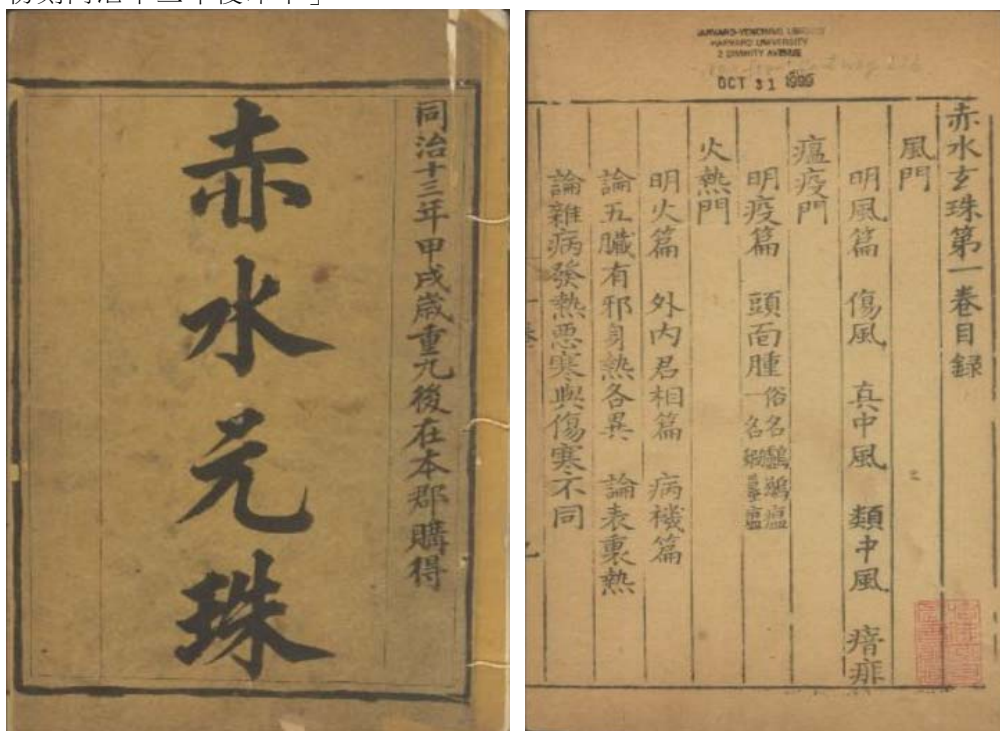 同治十三年甲戌歲重九後在本郡購得
赤水元珠
HARVARD-YENCHING LIBRARY
HARVARD UNIVERSITY
2 DIVINITY AVENUE
OCT 31
赤水玄珠第一卷目録
風門
明風篇 傷風 真中風 類中風 瘖痱
瘟疫門
明疫篇 頭面腫 俗名鸕鷀瘟一名蝦蟇瘟
火熱門
明火篇 外內君相篇 病機篇
論五臟有邪身熱各異 論表裏熱
論雜病發熱惡寒與傷寒不同